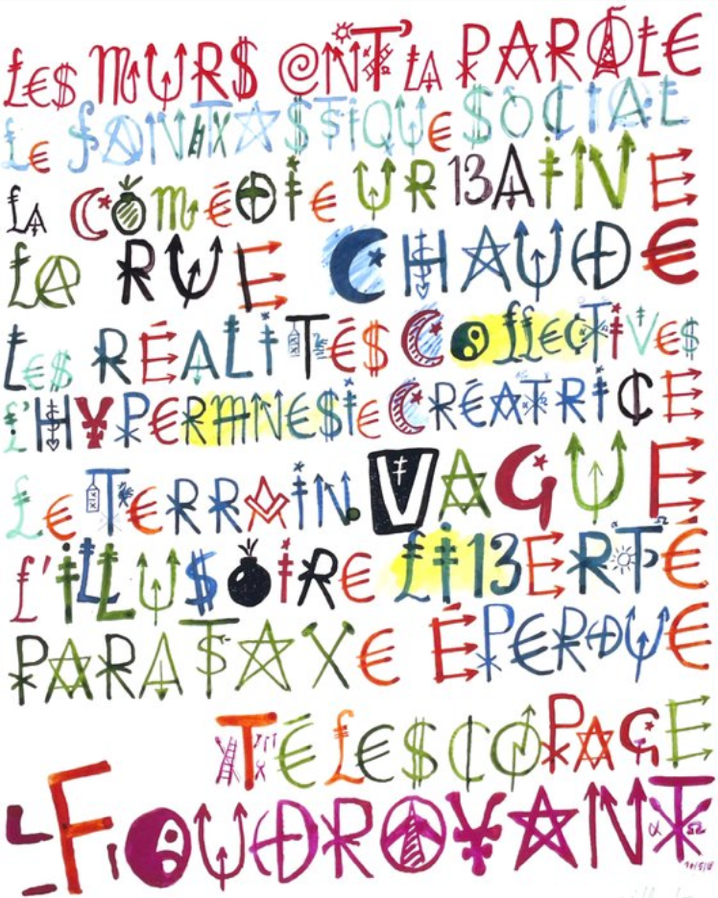 LES MURS ONT LA PAROLE
LE FANTASTIQUE SOCIAL
LA COMÉDIE URBAINE
LA RUE CHAUDE
LES RÉALITÉS COLLECTIVES
L'HYPERMNESIE CRÉATRICE
LE TERRAIN VAGUE
L'ILLUSOIRE LIBERTÉ
PARATAXE ÉPERDUE
TÉLESCOPAGE
FOUDROYANT